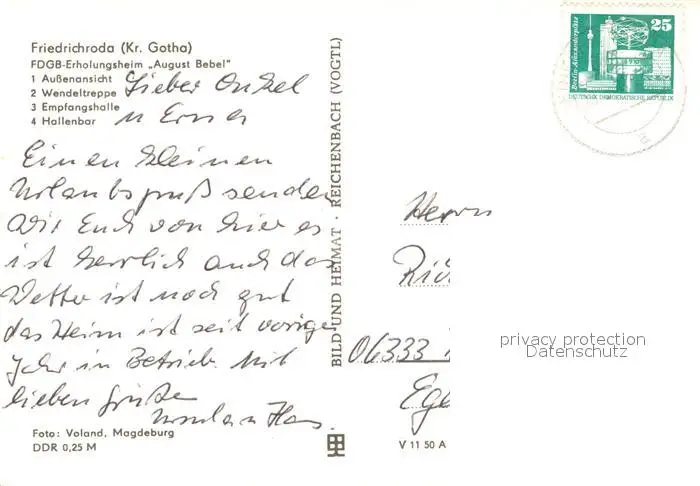 Friedrichroda (Kr. Gotha)
FDGB-Erholungsheim „August Bebel“
1 Außenansicht
2 Wendeltreppe
3 Empfangshalle
4 Hallenbar
Lieber Onkel
u Erna
Einen kleinen
Urlaubsgruß senden
Wir Euch von hier es
ist herrlich auch das
Wetter ist noch gut
das Heim ist seit voriges
Jahr in Betrieb. Mit
lieben Grüße
Ursula u Hans.
Foto: Voland, Magdeburg
DDR 0,25 M
BILD UND HEIMAT · REICHENBACH (VOGTL)
25
Berlin-Alexanderplatz
DEUTSCHE DEMOKRATISCHE REPUBLIK
Herrn
06333
V 11 50 A
privacy protection
Datenschutz